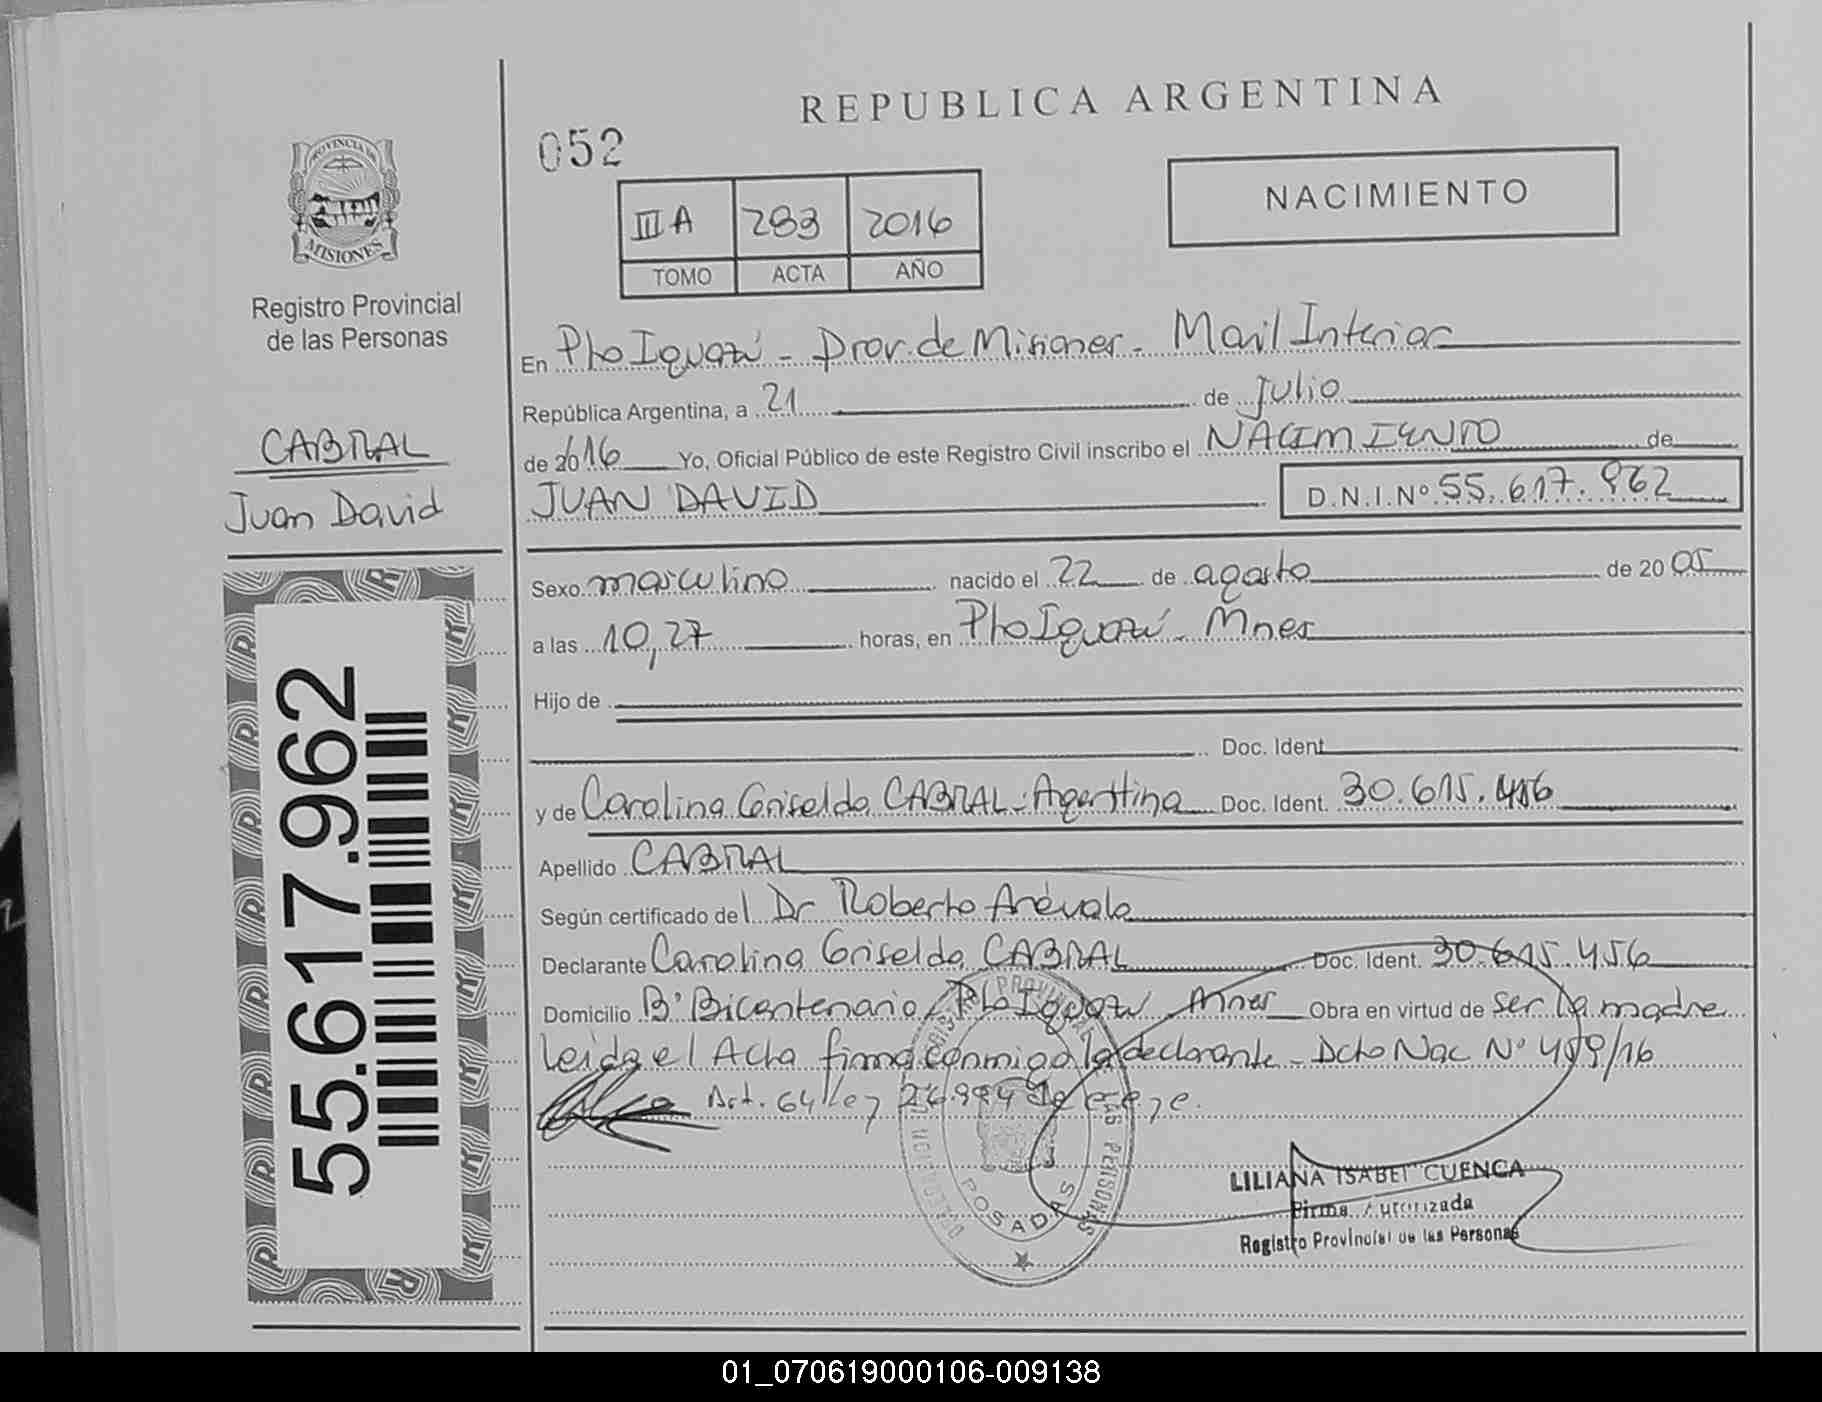 REPUBLICA ARGENTINA
052
NACIMIENTO
III A 283 2016
TOMO ACTA AÑO
PROVINCIA DE
MISIONES
Registro Provincial
de las Personas
CABRAL
Juan David
55.617.962
En Pto Iguazú - Prov. de Misiones - Movil Interior
República Argentina, a 21 de Julio
de 2016 Yo, Oficial Público de este Registro Civil inscribo el NACIMIENTO de
JUAN DAVID D.N.I.Nº 55.617.962
Sexo masculino nacido el 22 de agosto de 2005
a las 10,27 horas, en Pto Iguazú - Mnes
Hijo de
Doc. Ident.
y de Carolina Griselda CABRAL - Argentina Doc. Ident. 30.615.456
Apellido CABRAL
Según certificado del Dr Roberto Arévalo
Declarante Carolina Griselda CABRAL Doc. Ident. 30.615.456
Domicilio Bº Bicentenario, Pto Iguazú Mnes Obra en virtud de ser la madre
Leida el Acta firma conmigo la declarante - Dcto Nac Nº 459/16
Art. 64 Ley 26.994
POSADAS
LILIANA ISABEL CUENCA
Firma Autorizada
Registro Provincial de las Personas
01_070619000106-009138